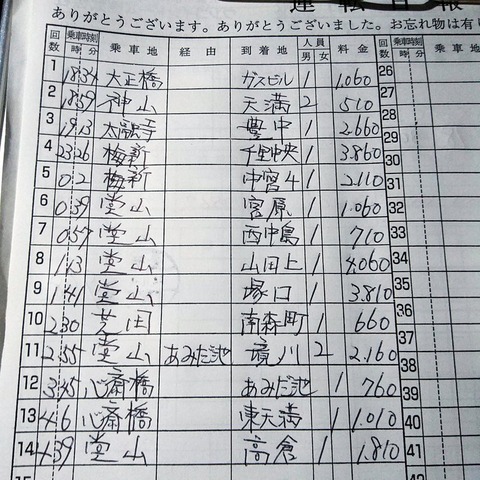 運転日報
ありがとうございます。ありがとうございました。お忘れ物は有り
回数 乗車時刻 時 分 乗車地 経由 到着地 人員 男 女 料金 回数 乗車時刻 時 分
1 18 34 大正橋 ガスビル 1 1,060 26
2 18 59 神山 天満 2 510 27
3 19 13 太融寺 豊中 1 2,660 28
4 23 26 梅新 千里中央 1 3,860 30
5 0 2 梅新 中宮4 1 2,110 31
6 0 39 堂山 宮原 1 1,060 32
7 0 57 堂山 西中島 1 710 33
8 1 13 堂山 山田上 1 4,060 34
9 1 41 堂山 塚口 1 3,810 35
10 2 30 芝田 南森町 1 660 36
11 2 55 堂山 あみだ池 境川 2 2,160 38
12 3 45 心斎橋 あみだ池 1 760 39
13 4 6 心斎橋 東天満 1 1,010 40
14 4 39 堂山 高倉 1 1,810 41
29
37